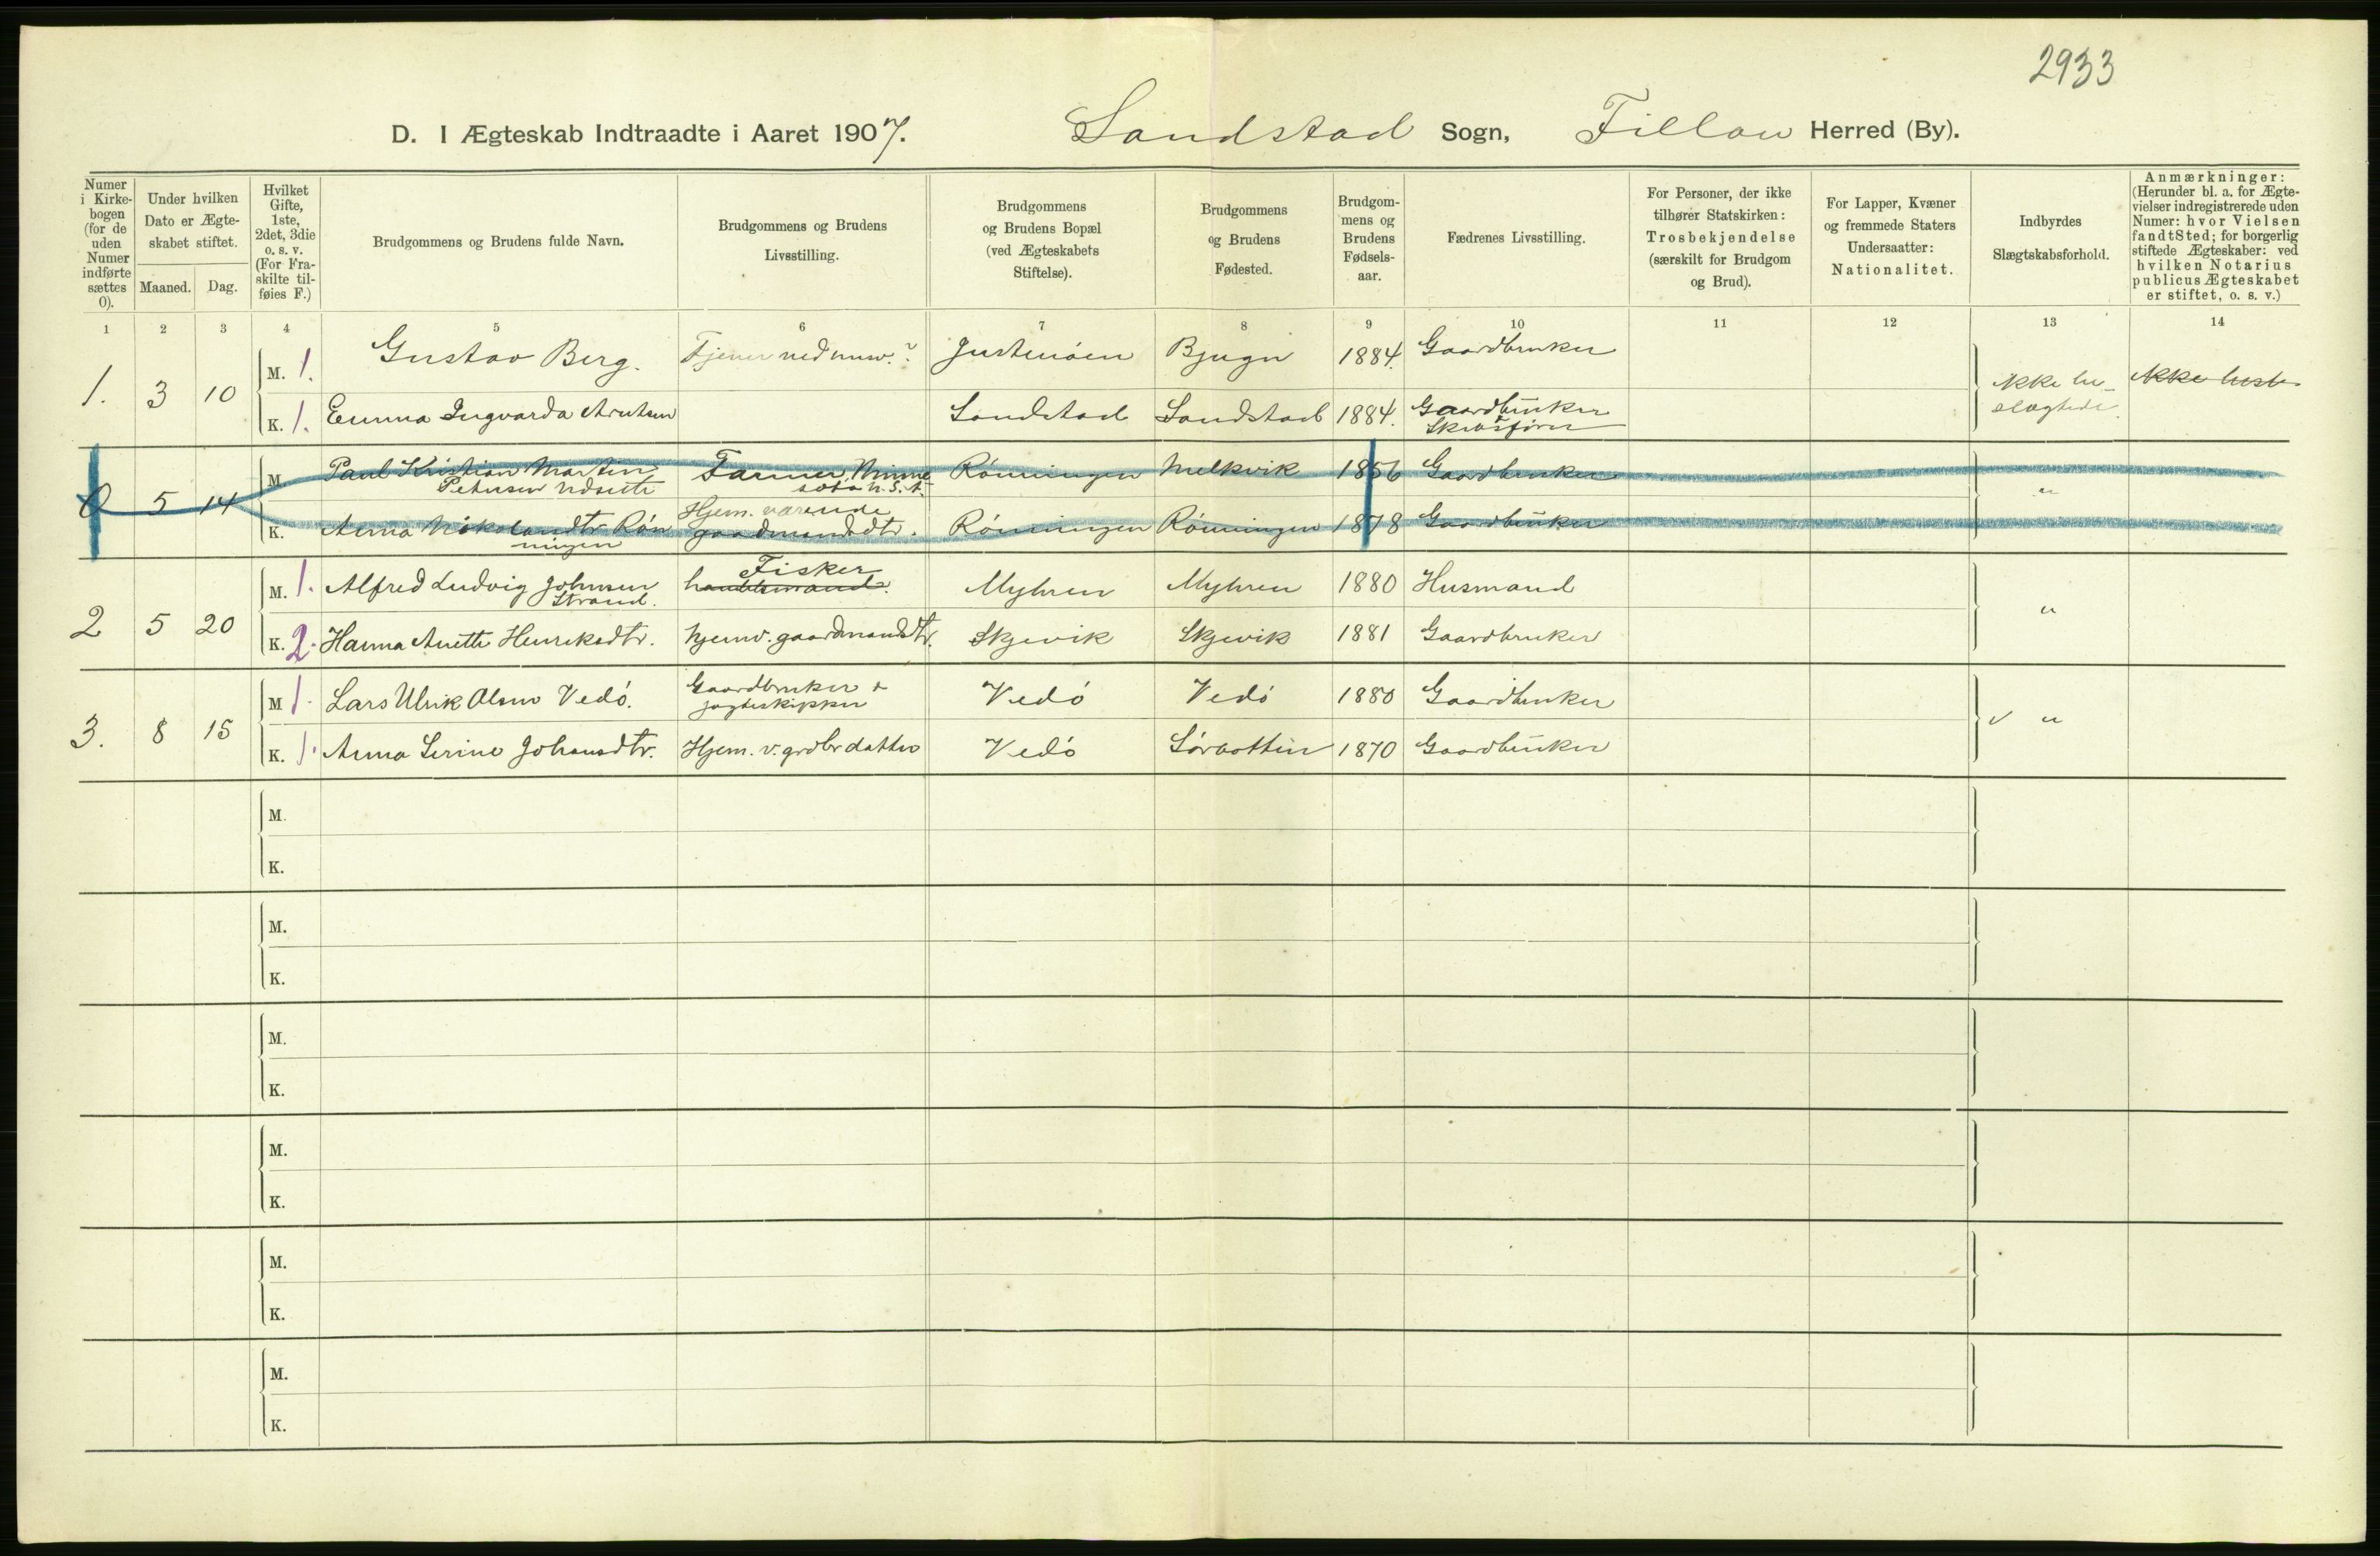 2933
D. I Ægteskab Indtraadte i Aaret 1907. Sandstad Sogn, Fillan Herred (By).
Numer i Kirkebogen (for de uden Numer indførte sættes 0).
Under hvilken Dato er Ægteskabet stiftet.
Maaned. Dag.
Hvilket Gifte, 1ste, 2det, 3die o. s. v. (For Fraskilte tilføies F.)
Brudgommens og Brudens fulde Navn.
Brudgommens og Brudens Livsstilling.
Brudgommens og Brudens Bopæl (ved Ægteskabets Stiftelse).
Brudgommens og Brudens Fødested.
Brudgommens og Brudens Fødselsaar.
Fædrenes Livsstilling.
For Personer, der ikke tilhører Statskirken: Trosbekjendelse (særskilt for Brudgom og Brud).
For Lapper, Kvæner og fremmede Staters Undersaatter: Nationalitet.
Indbyrdes Slægtskabsforhold.
Anmærkninger: (Herunder bl. a. for Ægtevielser indregistrerede uden Numer: hvor Vielsen fandt Sted; for borgerlig stiftede Ægteskaber: ved hvilken Notarius publicus Ægteskabet er stiftet, o. s. v.)
1 2 3 4 5 6 7 8 9 10 11 12 13 14
1. 3 10 M. 1. Gustav Berg. Bjugn 1884. Gaardbruker
K. 1. Emma Ingvarda Sandstad Sandstad 1884. Gaardbruker
ikke beslægtede
0 5 14 M. Paul Kristian Martin Petersen Farmer, Minnesota U.S.A. Rönningen Melkvik 1856 Gaardbruker "
K. Anna Nikolaidtr Rönningen Hjem. værende gaardmandsdtr. Rönningen Rönningen 1878 Gaardbruker
2 5 20 M. 1. Alfred Ludvig Johnsen Strand. Fisker Myhren Myhren 1880 Husmand "
K. 2. Hanna Anette Henriksdtr. hjemv. gaardmandsdtr. Skjevik Skjevik 1881 Gaardbruker
3. 8 15 M 1. Lars Ulrik Olsen Vedö. Gaardbruker & jagteskipper Vedö Vedö 1880 Gaardbruker "
K. 1. Anna Serine Johansdtr. Hjem. v. grdbr datter Vedö 1870 Gaardbruker
M.
K.
M.
K.
M.
K.
M.
K.
M.
K.
M.
K.